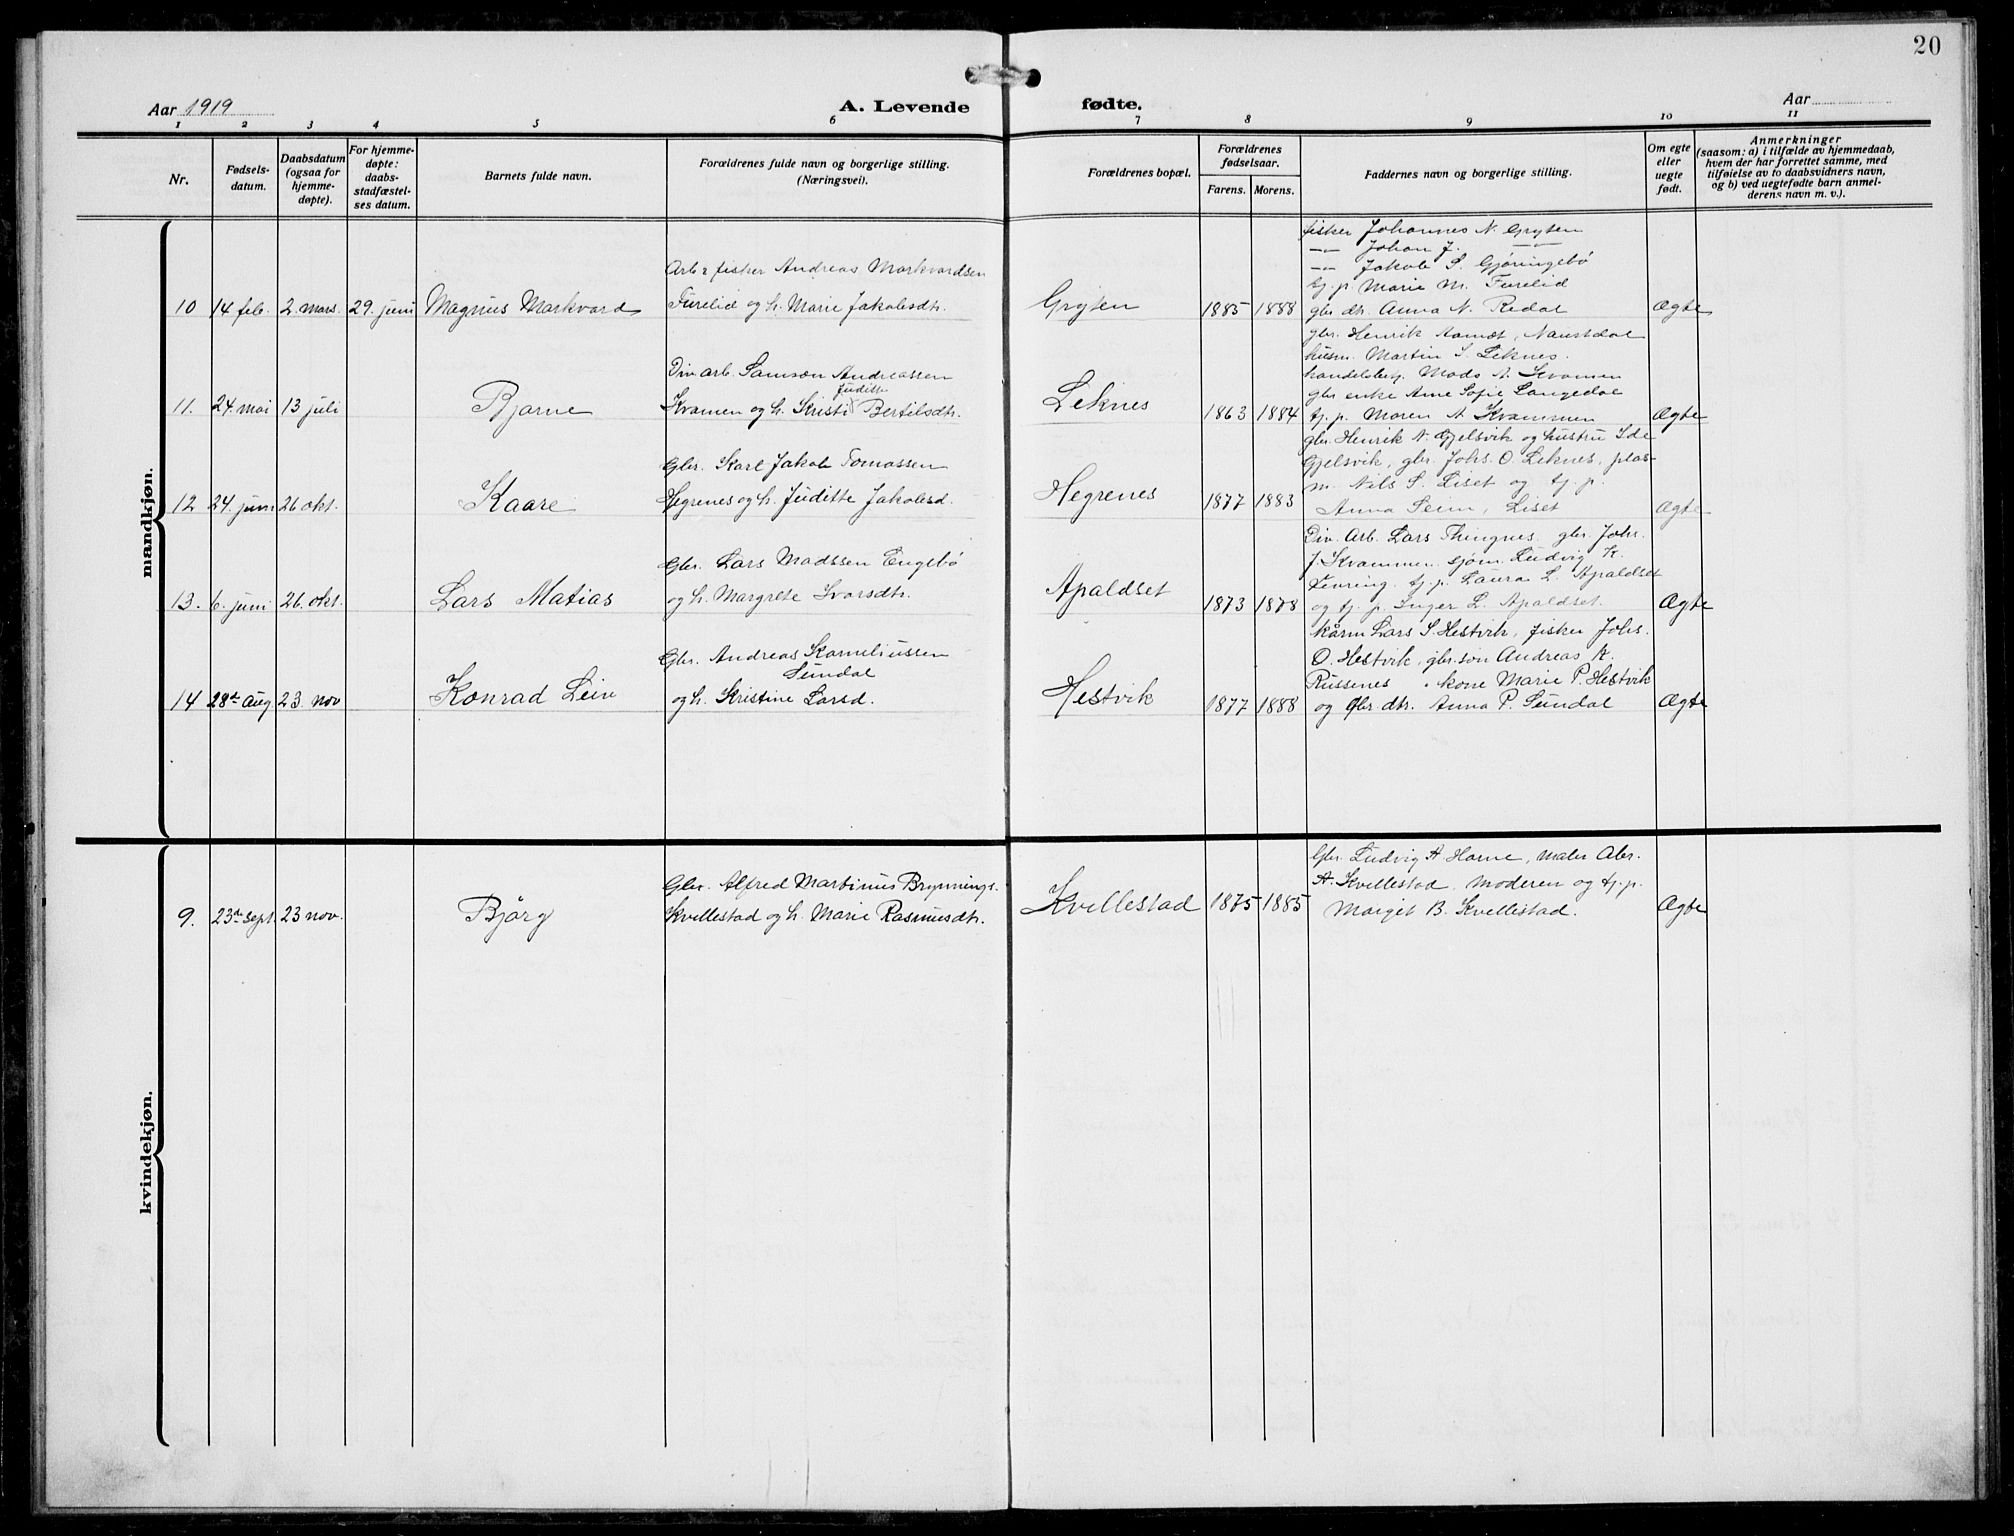 20
Aar 1919
A. Levende fødte.
Aar
1 2 3 4 5 6 7 8 9 10 11
Nr.
Fødsels-
datum.
Daabsdatum
(ogsaa for
hjemme-
døpte).
For hjemme-
døpte:
daabs-
stadfæstel-
ses datum.
Barnets fulde navn.
Forældrenes fulde navn og borgerlige stilling.
(Næringsvei).
Forældrenes bopæl.
Forældrenes
fødselsaar.
Farens. Morens.
Faddernes navn og borgerlige stilling.
Om egte
eller
uegte
født.
Anmerkninger
(saasom: a) i tilfælde av hjemmedaab,
hvem der har forrettet samme, med
tilføielse av to daabsvidners navn,
og b) ved uegtefødte barn anmel-
derens navn m. v.).
mandkjøn.
10 14 feb. 2. mars. 29. juni Magnus Markvard
Arb & fisker Andreas Markvardsen
Furelid og h. Marie Jakobsdtr.
Gryten 1885 1888
fisker Johannes N. Gryten
—"— Johan J. —"—
—"— Jakob S. Gjøringebø
tj. p. Marie M. Furelid
gbr dtr. Anna N. Redal
Ægte
11. 24. mai 13 juli Bjarne
Div. arb. Samson Andreassen
Juditte
Kvamen og h. Kristi Bertilsdtr.
Leknes 1863 1884
gbr. Henrik Aamot, Naustdal
husm. Martin S. Leknes.
handelsbetj. Mads A. Kvamen
gbr enke Ane Sofie Langedal
tj. p. Maren A. Kvammen
Ægte
12 24. juni 26 okt. Kaare
Gbr. Karl Jakob Tomassen
Hegrenes og h. Juditte Jakobsd.
Hegrenes 1877 1883
gbr. Henrik N. Gjelsvik og hustru Ide
Gjelsvik, gbr. Johs. O. Leknes, plas-
m. Nils S. Liset og tj. p.
Anna Senn, Liset
Ægte
13. 6. juni 26. okt. Lars Matias
Gbr. Lars Madssen Engebø
og h. Margrete Ivarsdtr.
Apaldset 1873 1878
Div. Arb. Lars Thingnes, gbr. Johs.
J. Kvammen, sjøm. Ludvig K.
Levring, tj. p. Laura L. Apaldset
og tj. p. Inger L. Apaldset.
Ægte
14 28de Aug 23. nov Konrad Leiv
Gbr. Andreas Korneliussen
Sundal
og h. Kristine Larsd.
Hestvik 1877 1888
kårm Lars S. Hestvik, fisker Johs.
O. Hestvik, gbr. søn Andreas K.
Russenes, kone Marie P. Hestvik
og gbr dtr. Anna P. Sundal
Ægte
kvindekjøn.
9. 23de sept. 23 nov. Bjørg
Gbr. Alfred Martinus Brynnings.
Kvellestad og h. Marie Rasmusdtr.
Kvellestad 1875 1885
Gbr. Ludvig A Horne, maler Abr.
A. Kvellestad, moderen og tj. p.
Margit B. Kvellestad.
Ægte